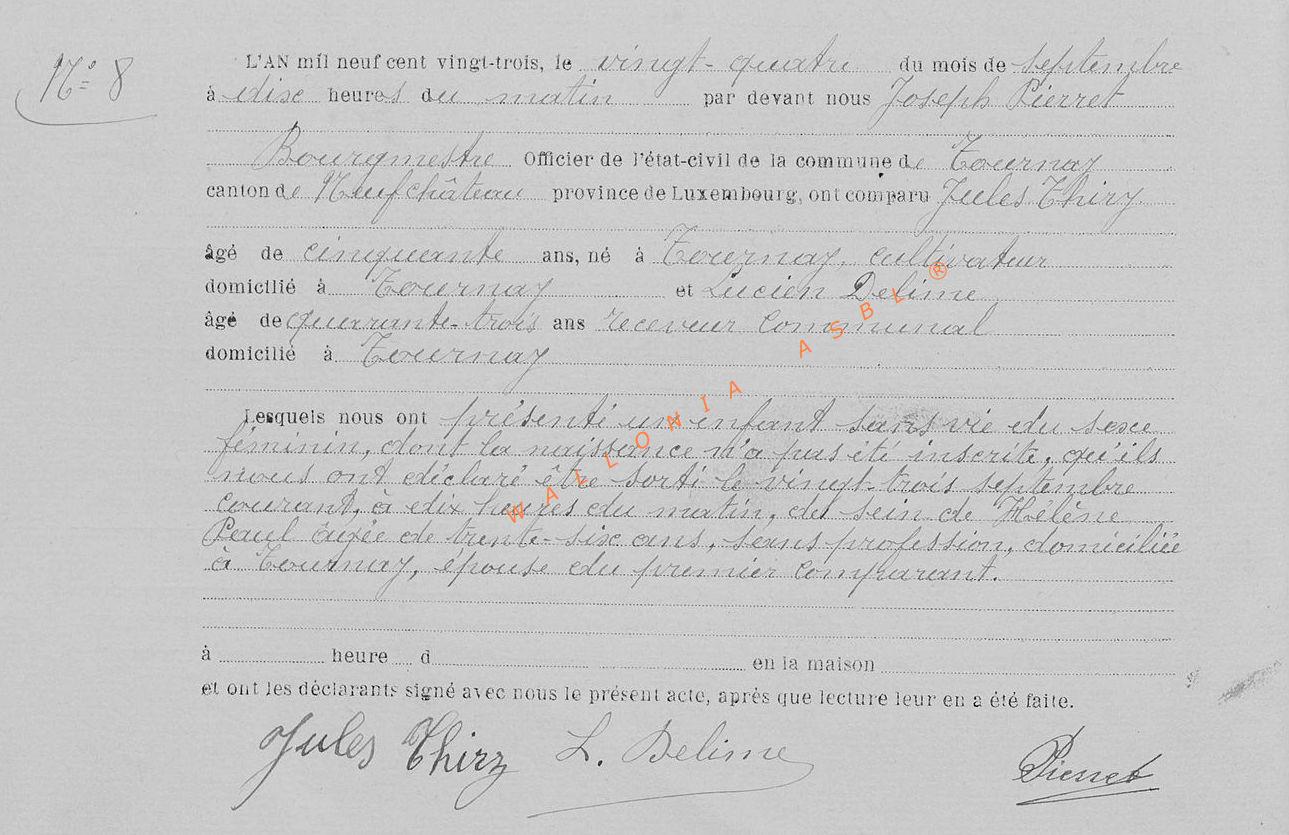 N° 8
L'AN mil neuf cent vingt-trois, le vingt-quatre du mois de septembre
à dix heures du matin par devant nous Joseph Pierret
Bourgmestre Officier de l'état-civil de la commune de Tournay
canton de Neufchâteau province de Luxembourg, ont comparu Jules Thiry
âgé de cinquante ans, né à Tournay, cultivateur
domicilié à Tournay et Lucien Delime
âgé de quarante-trois ans receveur communal
domicilié à Tournay
Lesquels nous ont présenté un enfant sans vie du sexe
féminin, dont la naissance n'a pas été inscrite, qu'ils
nous ont déclaré être sorti le vingt-trois septembre
courant, à dix heures du matin, du sein de Hélène
Paul âgée de trente-six ans, sans profession, domiciliée
à Tournay, épouse du premier comparant.
à heure d en la maison
et ont les déclarants signé avec nous le présent acte, après que lecture leur en a été faite.
Jules Thiry L. Delime Pierret
WALLONIA ASBL ®